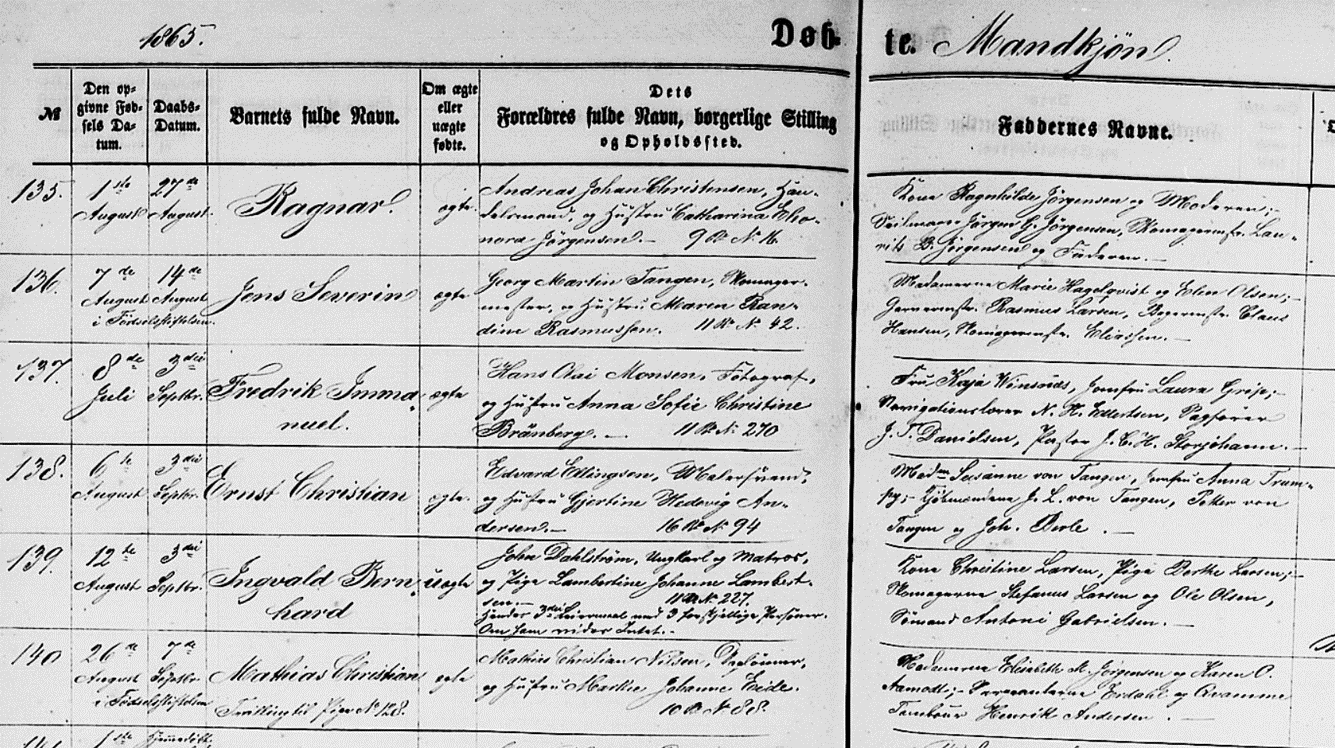 1865.
Døb-
te. Mandkjøn.
№
Den op-
givne Fød-
sels Da-
tum.
Daabs-
Datum.
Barnets fulde Navn.
Om ægte
eller
uægte
fødte.
Dets
Forældres fulde Navn, borgerlige Stilling
og Opholdssted.
Faddernes Navne.
135.
1ste
August
27de
August.
Ragnar.
ægte
Andreas Johan Christensen, Han-
delsmand, og Hustru Catharina Eleo-
nora Jörgensen.— 9 R № 16
Kone Ragnhilde Jörgensen og Moderen;-
Jörgen G. Jörgensen, Skomagermstr. Lau-
rits B. Jörgensen og Faderen.—
136.
7de
August
14de
August
i Födselsstiftelsen
Jens Severin
ægte
Georg Martin Tangen, Skomager-
mester, og Hustru Maren Ran-
dine Rasmussen. 11 R № 42.
Madamerne Marie Hagelqvist og Elen Olsen;-
Garvermstr. Rasmus Larsen, Bagermstr. Claus
Hansen, Skomagermstr. Ellevsen.—
137.
8de
Juli
3die
Septbr.
Fredrik Imma-
nuel.
ægte
Hans Olai Monsen, Fotograf,
og Hustru Anna Sofie Christine
Brünberg.— 11 R № 270
Fru Kaja Winsnæs, Jomfru Laura Grip;-
Navigationslærer N. H. Edlertsen,
J. T. Danielsen, Pastor J. C. H. Storjohann.—
138.
6te
August
3die
Septbr.
Ernst Christian
ægte
Edvard Edlingsen, Malersvend,
og Hustru Gjertine Hedevig An-
dersen.— 16 R № 94
Madm Susanne von Tangen, Jomfru Anna Trum-
py;- J. L. von Tangen, Petter von
Tangen og Joh. Berle.—
139.
12te
August
3die
Septbr.
Ingvald Bern-
hard
uægte
John Dahlström, Ungkarl og Matros,
og Pige Lambertine Johanne Lambert-
sen.— 11 R № 227.
Hendes 3die Leiermaal med 3 forskjellige Personer.
Om ham vides Intet.-
Kone Christine Larsen, Pige Berthe Larsen;-
Skomagerne Stefanus Larsen og Ole Olsen,
Sömand Antoni Gabrielsen.—
140
26de
August
7de
Septbr
i Födselsstiftelsen
Mathias Christian
Tvilling til Pige № 128.
ægte
Mathias Christian Nilsen,
og Hustru Marthe Johanne Eide.
10 R № 88.
Madamerne Elisabeth M. Jörgensen og Karen O.
Aamodt;- Erdahl og Qvamme
Tambour Henrik Andersen.—
141
1ste